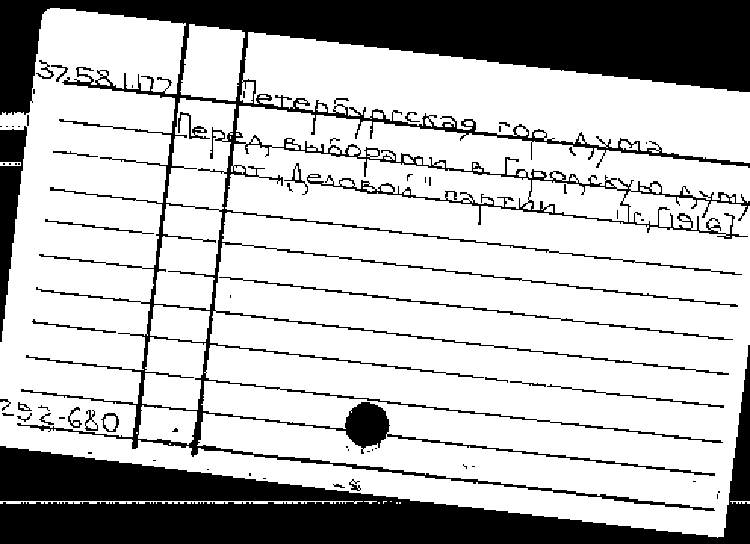 37.58.1.177
Петербургская гор. дума
Перед выборами в Городскую думу
от „Деловой" партии [1916]
292-680